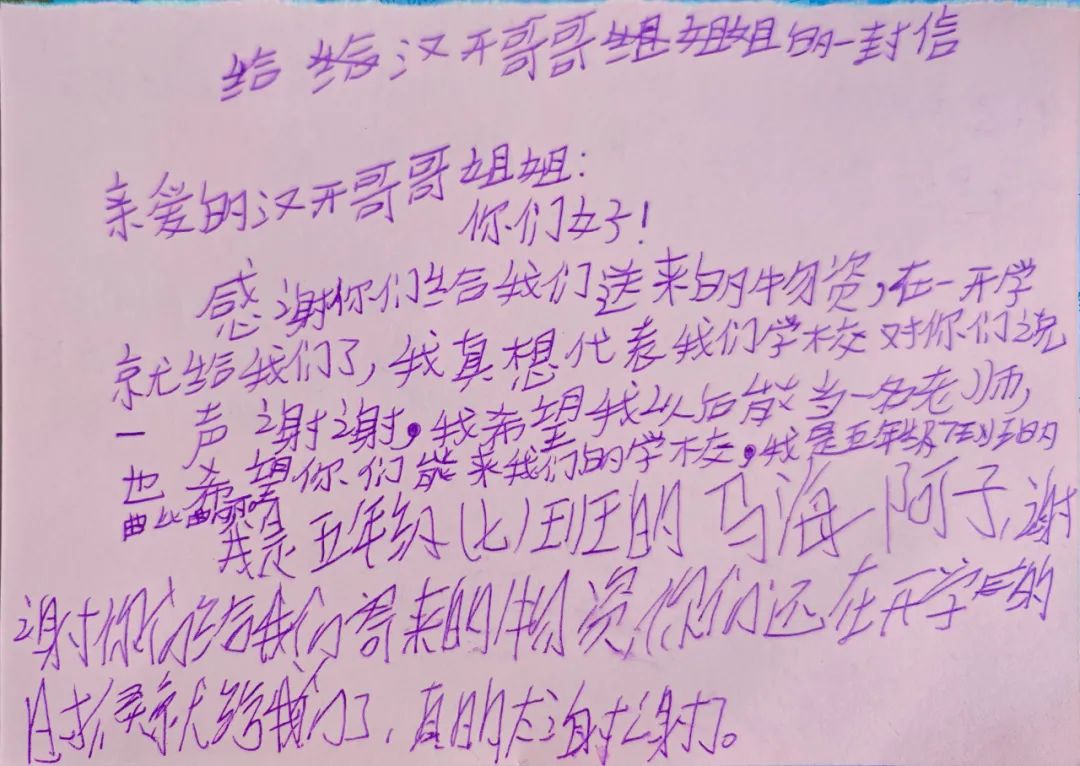 给 给汉开哥哥姐姐姐的一封信
亲爱的汉开哥哥姐姐:
你们好!
感谢你们给我们送来的物资,在一开学
就给我们了,我真想代表我们学校对你们说
一声谢谢。我希望我以后能当一名老师,
也希望你们能来我们的学校,我是五年级7班的
曲比
我是五年级(七)班的马海阿子,谢
谢你们给我们寄来的物资,你们还在开学的
时候就给我们了,真的太谢谢了。